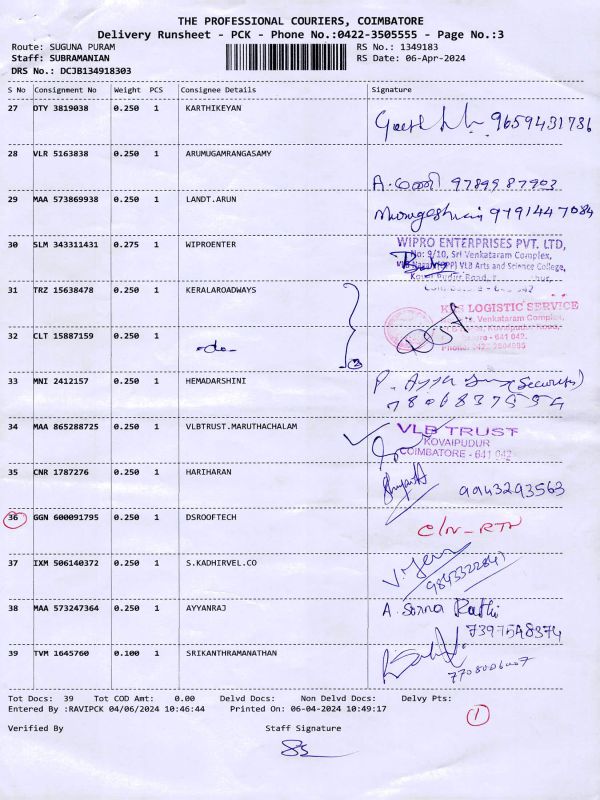 THE PROFESSIONAL COURIERS, COIMBATORE
Delivery Runsheet - PCK - Phone No.:0422-3505555 - Page No.:3
Route: SUGUNA PURAM RS No.: 1349183
Staff: SUBRAMANIAN RS Date: 06-Apr-2024
DRS No.: DCJB134918303
S No Consignment No Weight PCS Consignee Details Signature
27 DTY 3819038 0.250 1 KARTHIKEYAN
9659431736
28 VLR 5163838 0.250 1 ARUMUGAMRANGASAMY
A. மணி 9789987903
29 MAA 573869938 0.250 1 LANDT.ARUN
9791447084
30 SLM 343311431 0.275 1 WIPROENTER
WIPRO ENTERPRISES PVT. LTD,
No: 9/10, Sri Venkataram Complex,
VLB Arts and Science College,
31 TRZ 15638478 0.250 1 KERALAROADWAYS
LOGISTIC SERVICE
Venkataram Complex,
Kovaipudur Road,
32 CLT 15887159 0.250 1
-do- 2
- 641 042.
33 MNI 2412157 0.250 1 HEMADARSHINI
(Security)
34 MAA 865288725 0.250 1 VLBTRUST.MARUTHACHALAM
VLB TRUST
KOVAIPUDUR
COIMBATORE - 641 042
35 CNR 1787276 0.250 1 HARIHARAN
9943293563
36 GGN 600091795 0.250 1 DSROOFTECH
C/N-RTN
37 IXM 506140372 0.250 1 S.KADHIRVEL.CO
9843322841
38 MAA 573247364 0.250 1 AYYANRAJ
A. Sorna Rathi
7397548374
39 TVM 1645760 0.100 1 SRIKANTHRAMANATHAN
Tot Docs: 39 Tot COD Amt: 0.00 Delvd Docs: Non Delvd Docs: Delvy Pts:
Entered By :RAVIPCK 04/06/2024 10:46:44 Printed On: 06-04-2024 10:49:17
1
Verified By Staff Signature